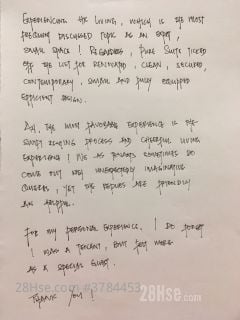 Experiencing the living, which is the most
frequent discussed topic as an expat,
small space! Regardless, Pure Suite ticked
off the list for renovated, clean, secured,
contemporary, smart and fully equipped
efficient design.
Ay, the most favorable experience is the
swift renting process and cheerful living
experience! We as tenants sometimes do
come out very unexpectedly imaginative
queries, yet the replies are patiently
and helpful.
For my personal experience, I do forget
I was a tenant, but felt more
as a special guest.
28Hse.com #3784453
28Hse.com
Thank you!